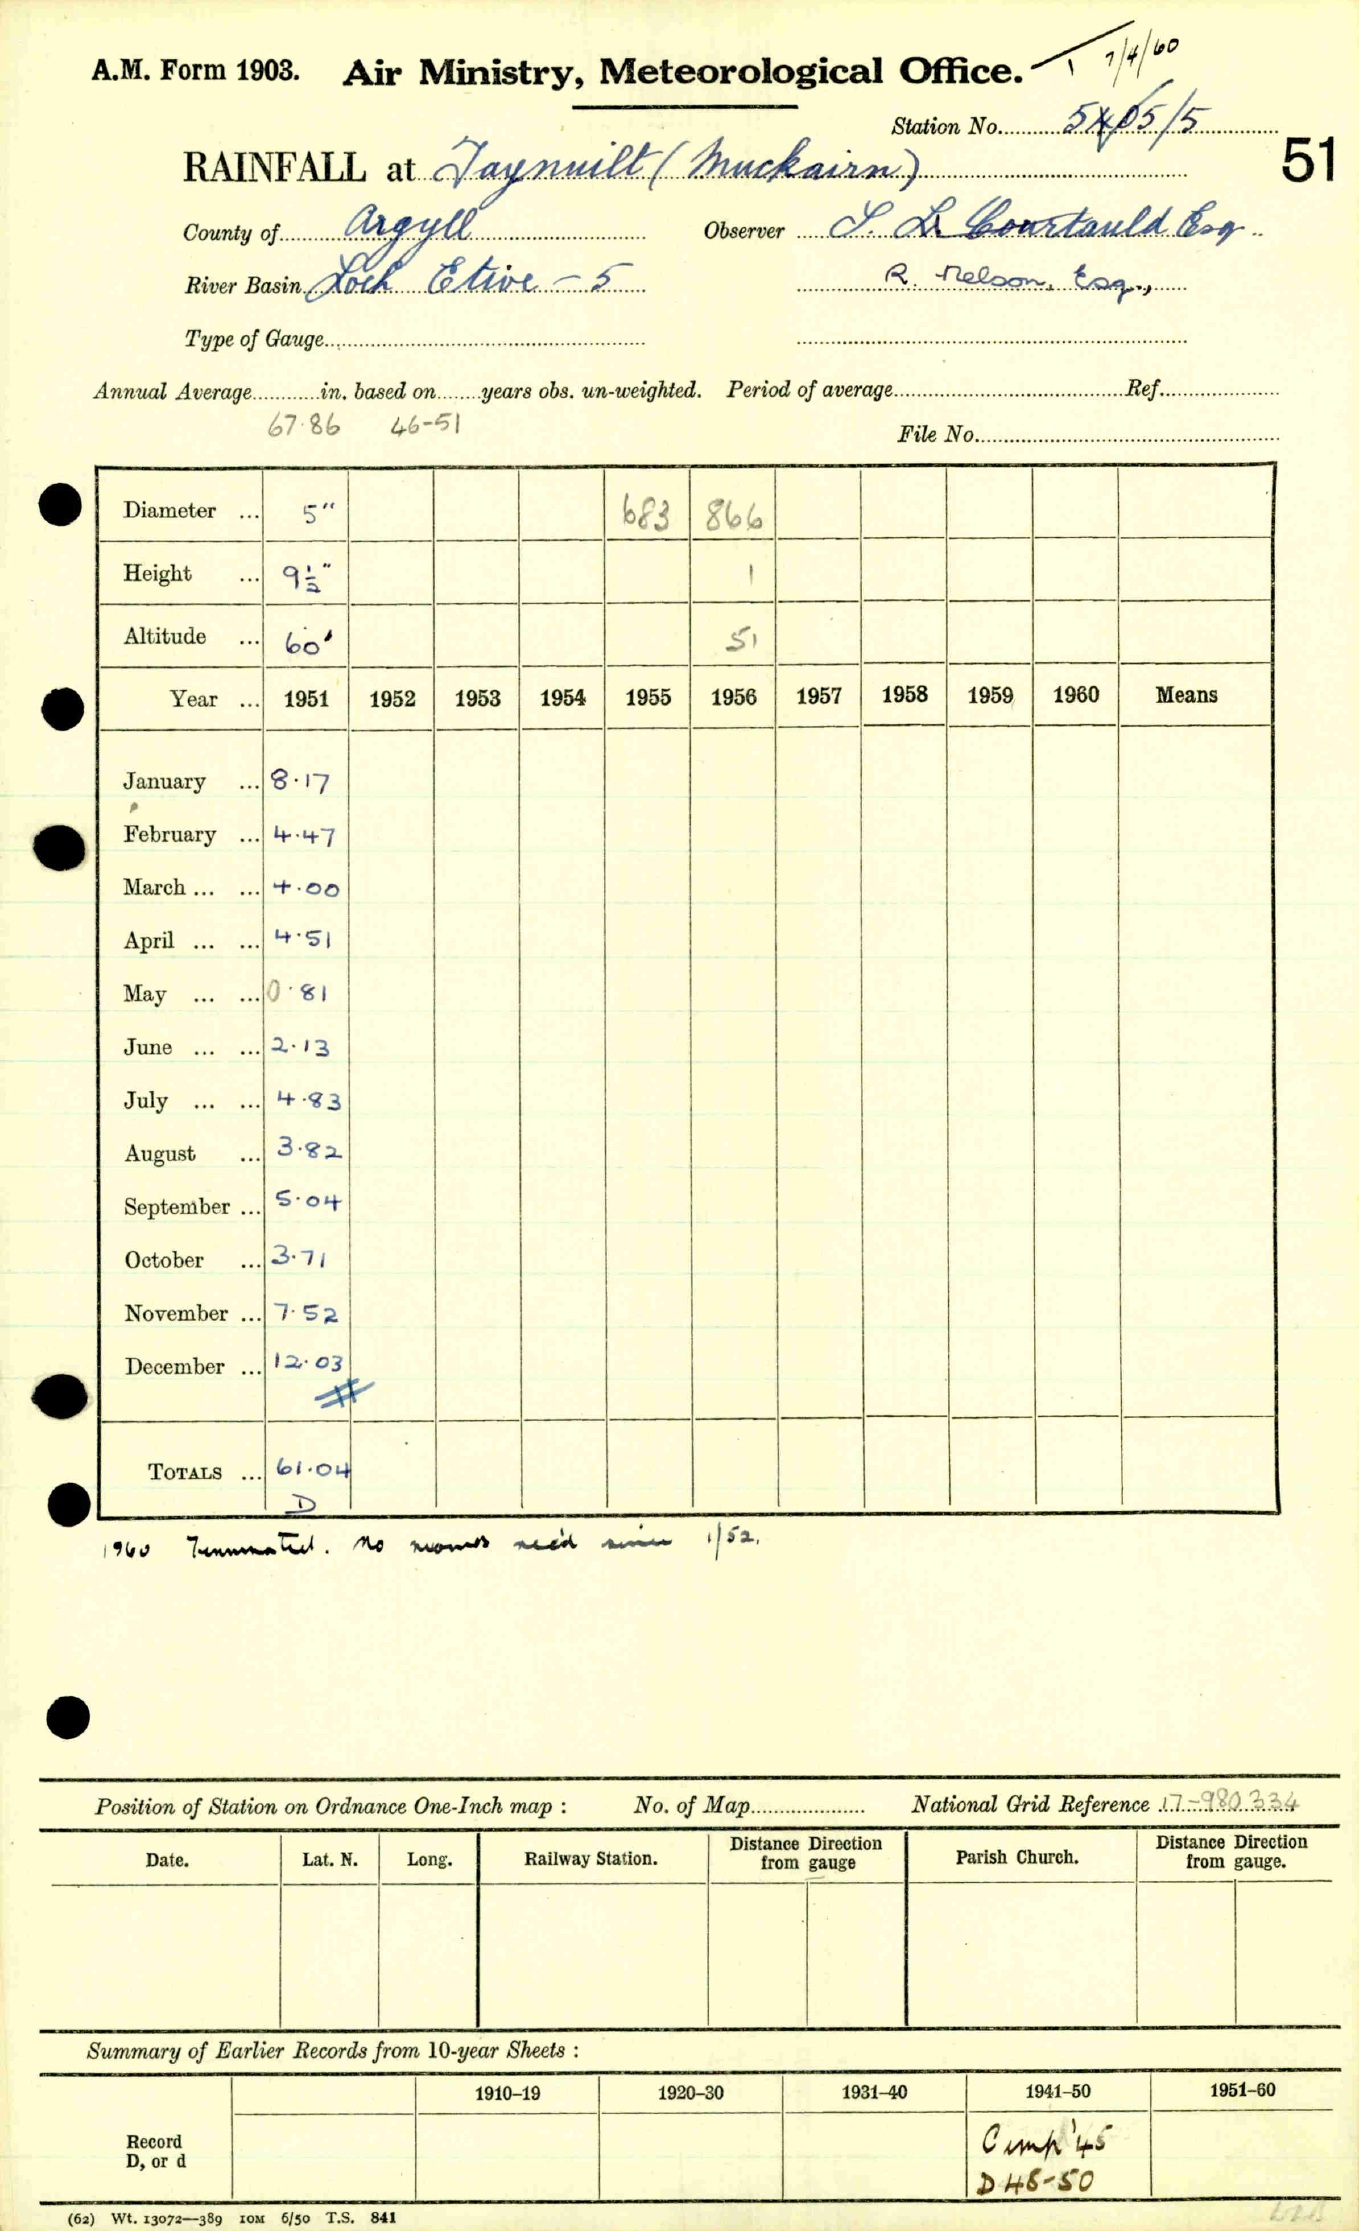 7/4/60
A.M. Form 1903. Air Ministry, Meteorological Office.
Station No. 5405/5
51
RAINFALL at Taynuilt (Muckairn)
County of Argyll Observer S. L. Courtauld Esq
River Basin Loch Etive - 5 R. Nelson, Esq.,
Type of Gauge
Annual Average in. based on years obs. un-weighted. Period of average Ref.
67.86 46-51
File No.
Diameter ... 5" 683 866
Height ... 9½" 1
Altitude ... 60' 51
Year ... 1951 1952 1953 1954 1955 1956 1957 1958 1959 1960 Means
January ... 8.17
February ... 4.47
March ... ... 4.00
April ... ... 4.51
May ... ... 0.81
June ... ... 2.13
July ... ... 4.83
August ... 3.82
September ... 5.04
October ... 3.71
November ... 7.52
December ... 12.03
TOTALS ... 61.04
D
1960 Terminated. No records rec'd since 1/52.
Position of Station on Ordnance One-Inch map : No. of Map National Grid Reference 17-980334
Date. Lat. N. Long. Railway Station. Distance Direction from gauge Parish Church. Distance Direction from gauge.
Summary of Earlier Records from 10-year Sheets :
1910-19 1920-30 1931-40 1941-50 1951-60
Record D, or d
Comp '45
D 48-50
(62) Wt. 13072—389 10M 6/50 T.S. 841